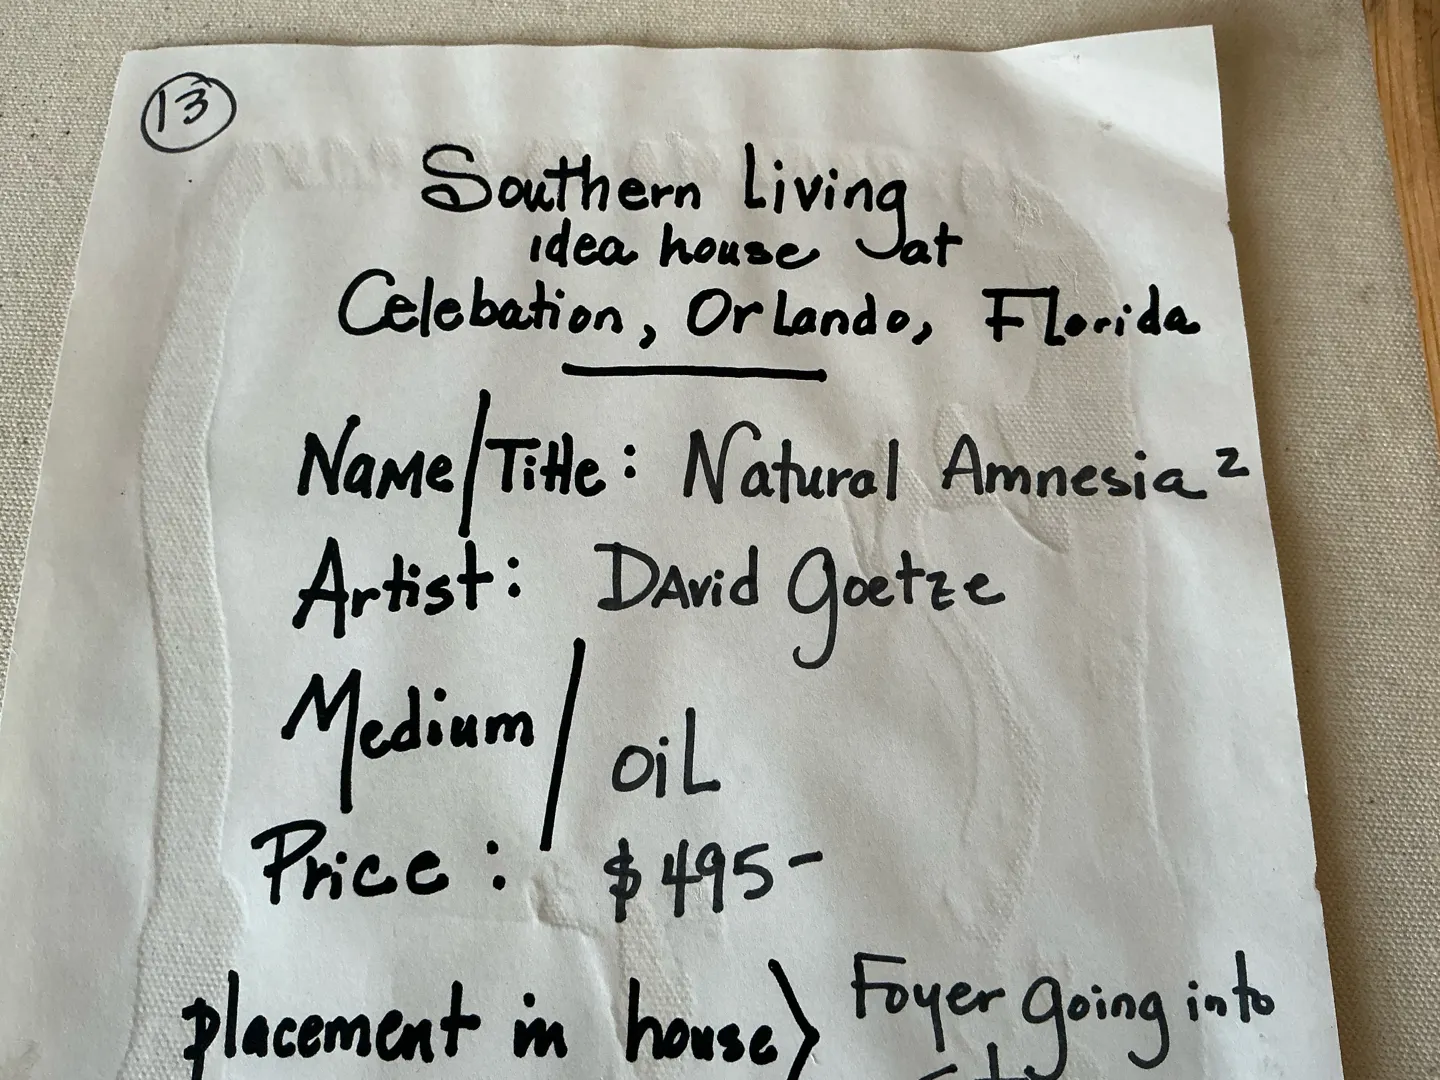 13
Southern Living
idea house at
Celebation, Orlando, Florida
Name/Title: Natural Amnesia ²
Artist: David Goetze
Medium/ oil
Price: $495-
placement in house> Foyer going into